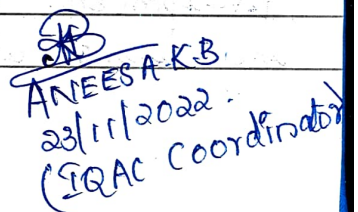 ANEESA.KB.
23/11/2022.
(IQAC Coordinator)